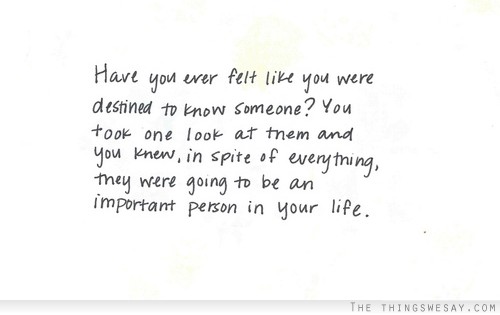 Have you ever felt like you were
destined to know someone? You
took one look at them and
you knew, in spite of everything,
they were going to be an
important person in your life.
THE THINGSWESAY.COM